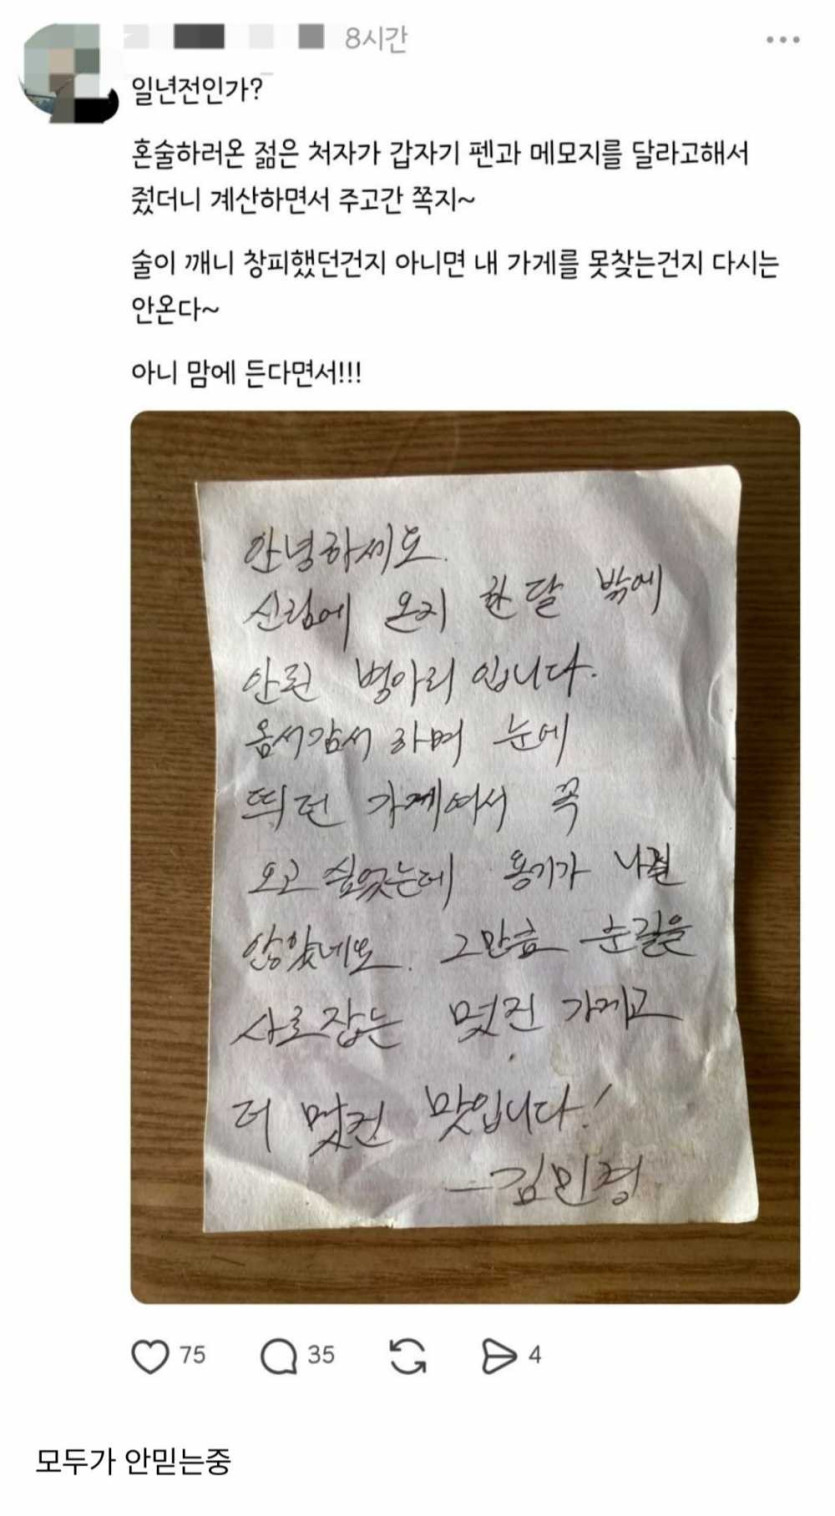 8시간
일년전인가?
혼술하러온 젊은 처자가 갑자기 펜과 메모지를 달라고해서
줬더니 계산하면서 주고간 쪽지~
술이 깨니 창피했던건지 아니면 내 가게를 못찾는건지 다시는
안온다~
아니 맘에 든다면서!!!
안녕하세요.
신림에 온지 한달 밖에
안된 병아리 입니다.
옴서감서 하며 눈에
띄던 가게여서 꼭
오고 싶었는데 용기가 나질
않았네요. 그만큼 눈길을
사로잡는 멋진 가게고
더 멋진 맛입니다!
-김민정
75
35
4
모두가 안믿는중